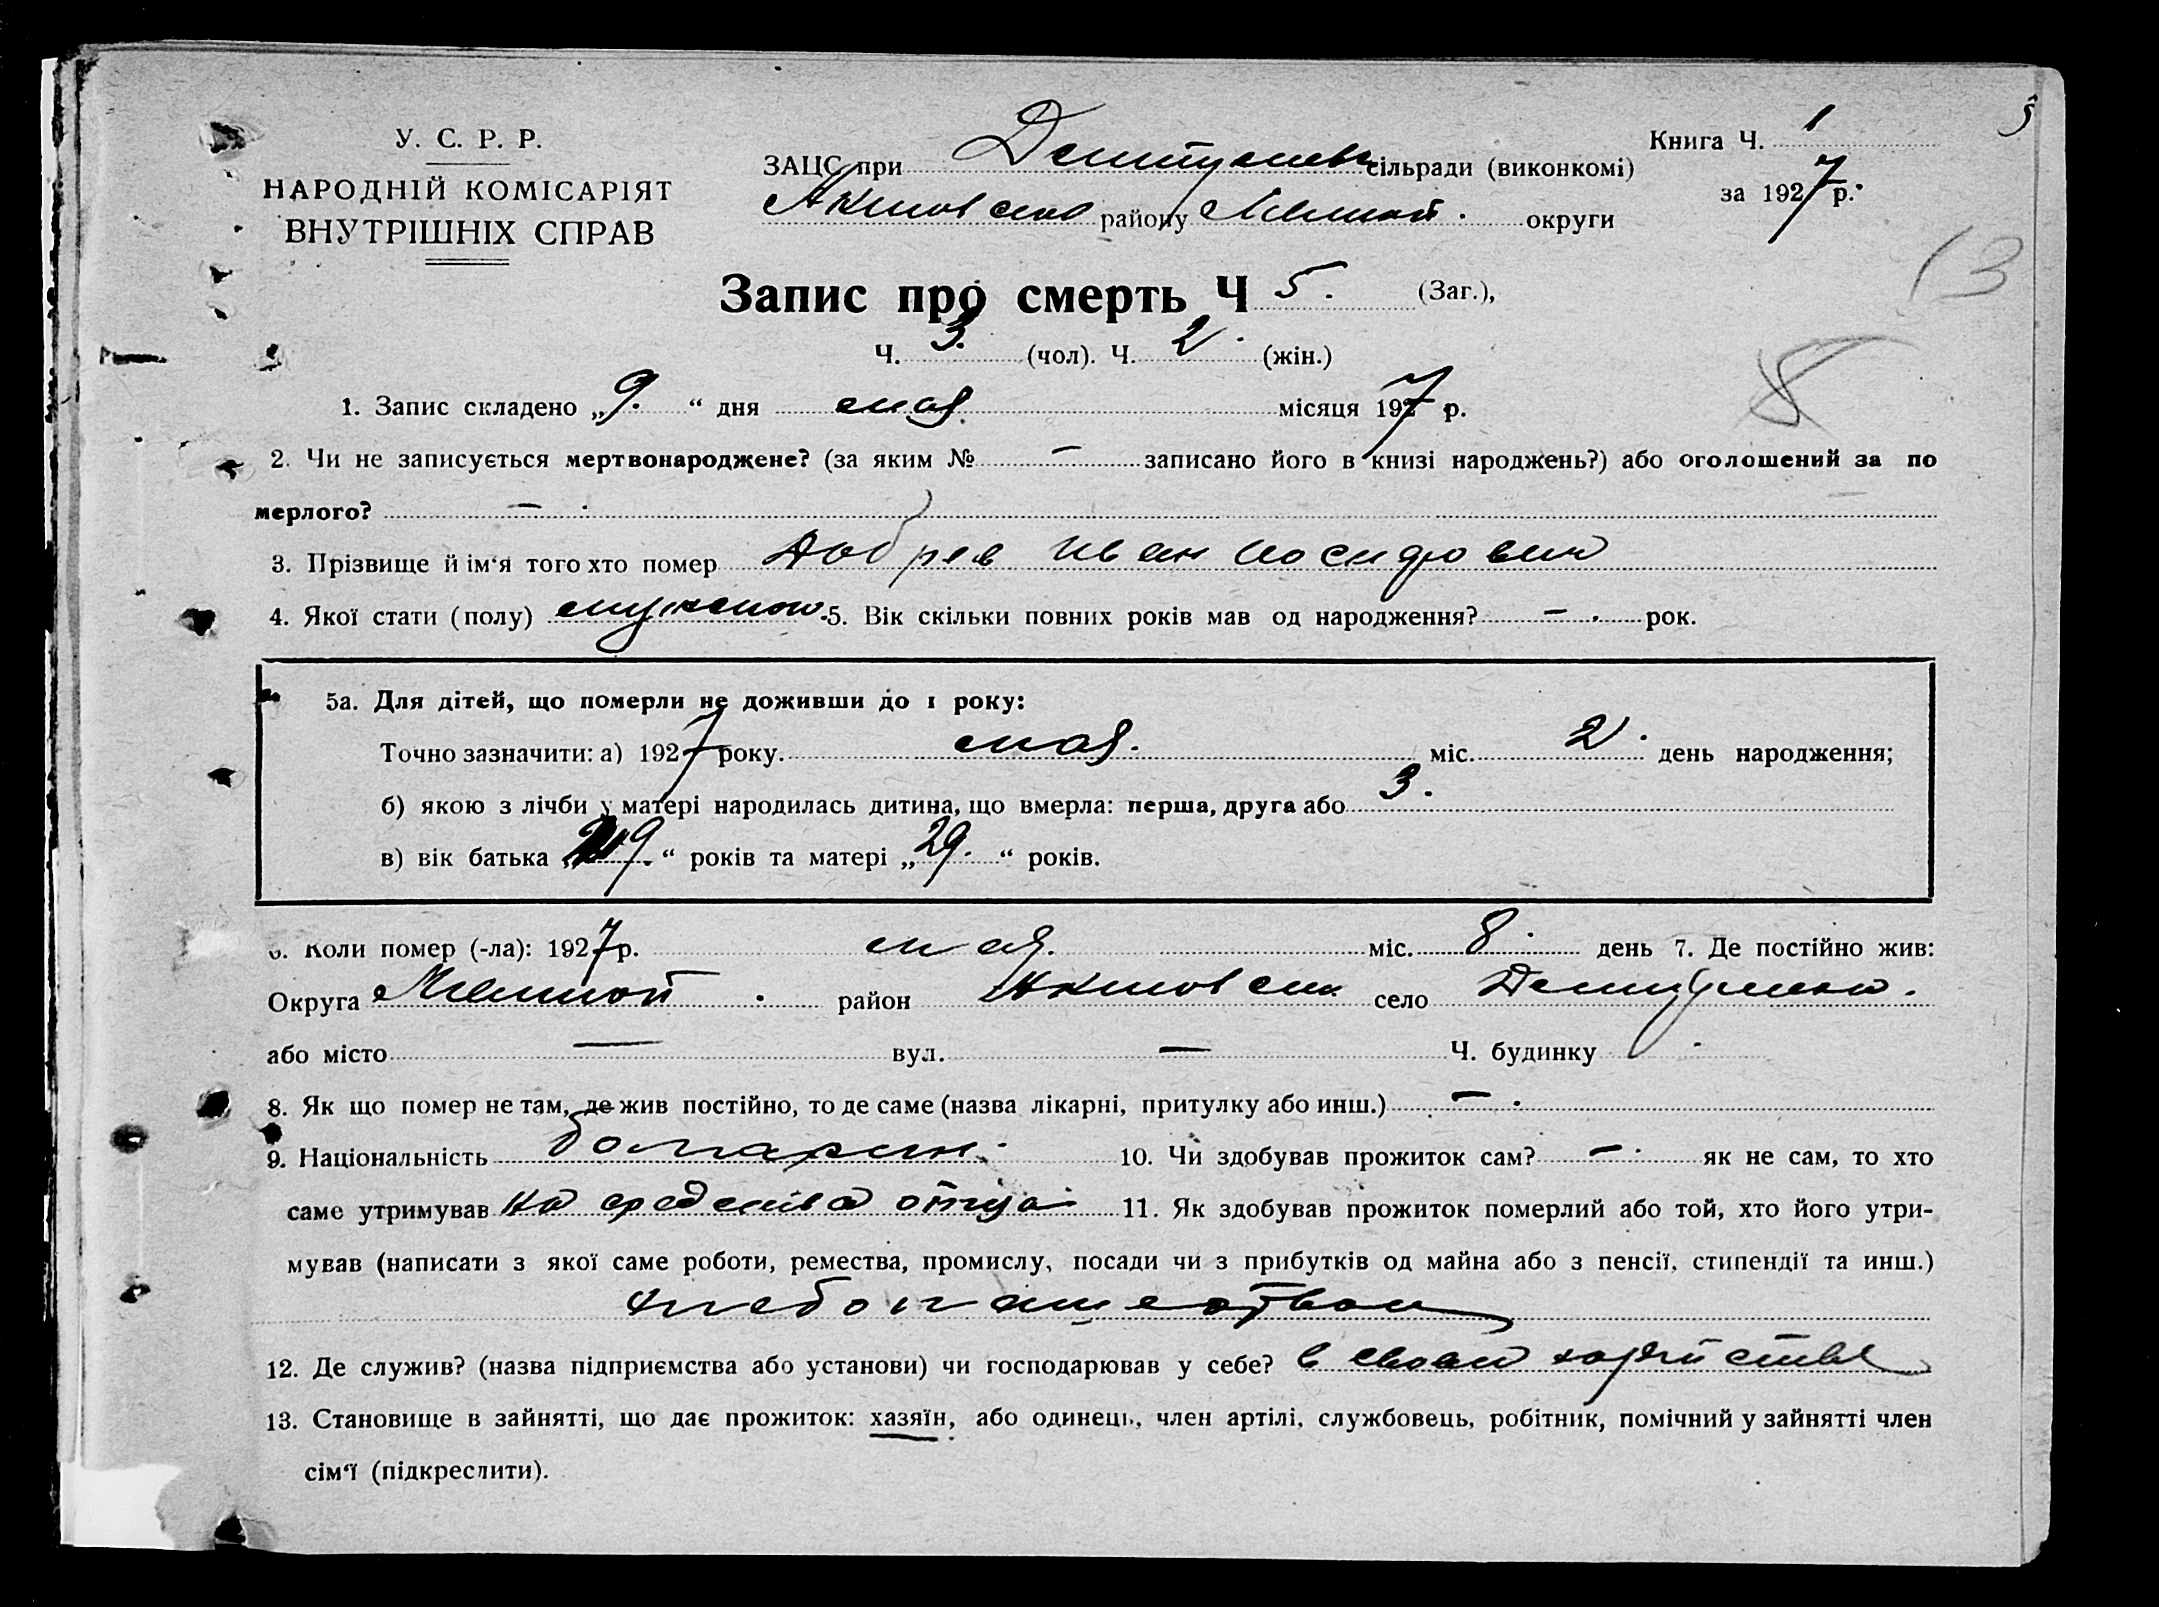 У. С. Р. Р.
НАРОДНІЙ КОМІСАРІЯТ
ВНУТРІШНІХ СПРАВ
ЗАЦС при сільради (виконкомі)
Акимовского району Мелитоп. округи
Книга Ч. 1
за 1927 р.
5
13
Запис про смерть Ч 5. (Заг.),
Ч. 3. (чол). Ч. 2. (жін.)
8
1. Запис складено „9.“ дня мая місяця 1927 р.
2. Чи не записується мертвонароджене? (за яким № — записано його в книзі народжень?) або оголошений за по
мерлого? — .
3. Прізвище й ім‘я того хто помер Добрев Иван Иосифович
4. Якої стати (полу) мужского. 5. Вік скільки повних років мав од народження? — . рок.
5а. Для дітей, що померли не доживши до 1 року:
Точно зазначити: а) 1927 року. мая. міс. 2. день народження;
б) якою з лічби у матері народилась дитина, що вмерла: перша, друга або 3.
в) вік батька „ “ років та матері „29.“ років.
6. Коли помер (-ла): 1927 р. мая. міс. 8. день 7. Де постійно жив:
Округа Мелитоп . район Акимовск. село
або місто — вул. — Ч. будинку .
8. Як що помер не там, де жив постійно, то де саме (назва лікарні, притулку або инш.) — .
9. Національність болгарин. 10. Чи здобував прожиток сам? — . як не сам, то хто
саме утримував на средства отца 11. Як здобував прожиток померлий або той, хто його утри-
мував (написати з якої саме роботи, ремества, промислу, посади чи з прибутків од майна або з пенсії, стипендії та инш.)
хлебопашеством
12. Де служив? (назва підприємства або установи) чи господарював у себе? в своем хозяйстве
13. Становище в зайнятті, що дає прожиток: хазяїн, або одинець, член артілі, службовець, робітник, помічний у зайнятті член
сім‘ї (підкреслити).